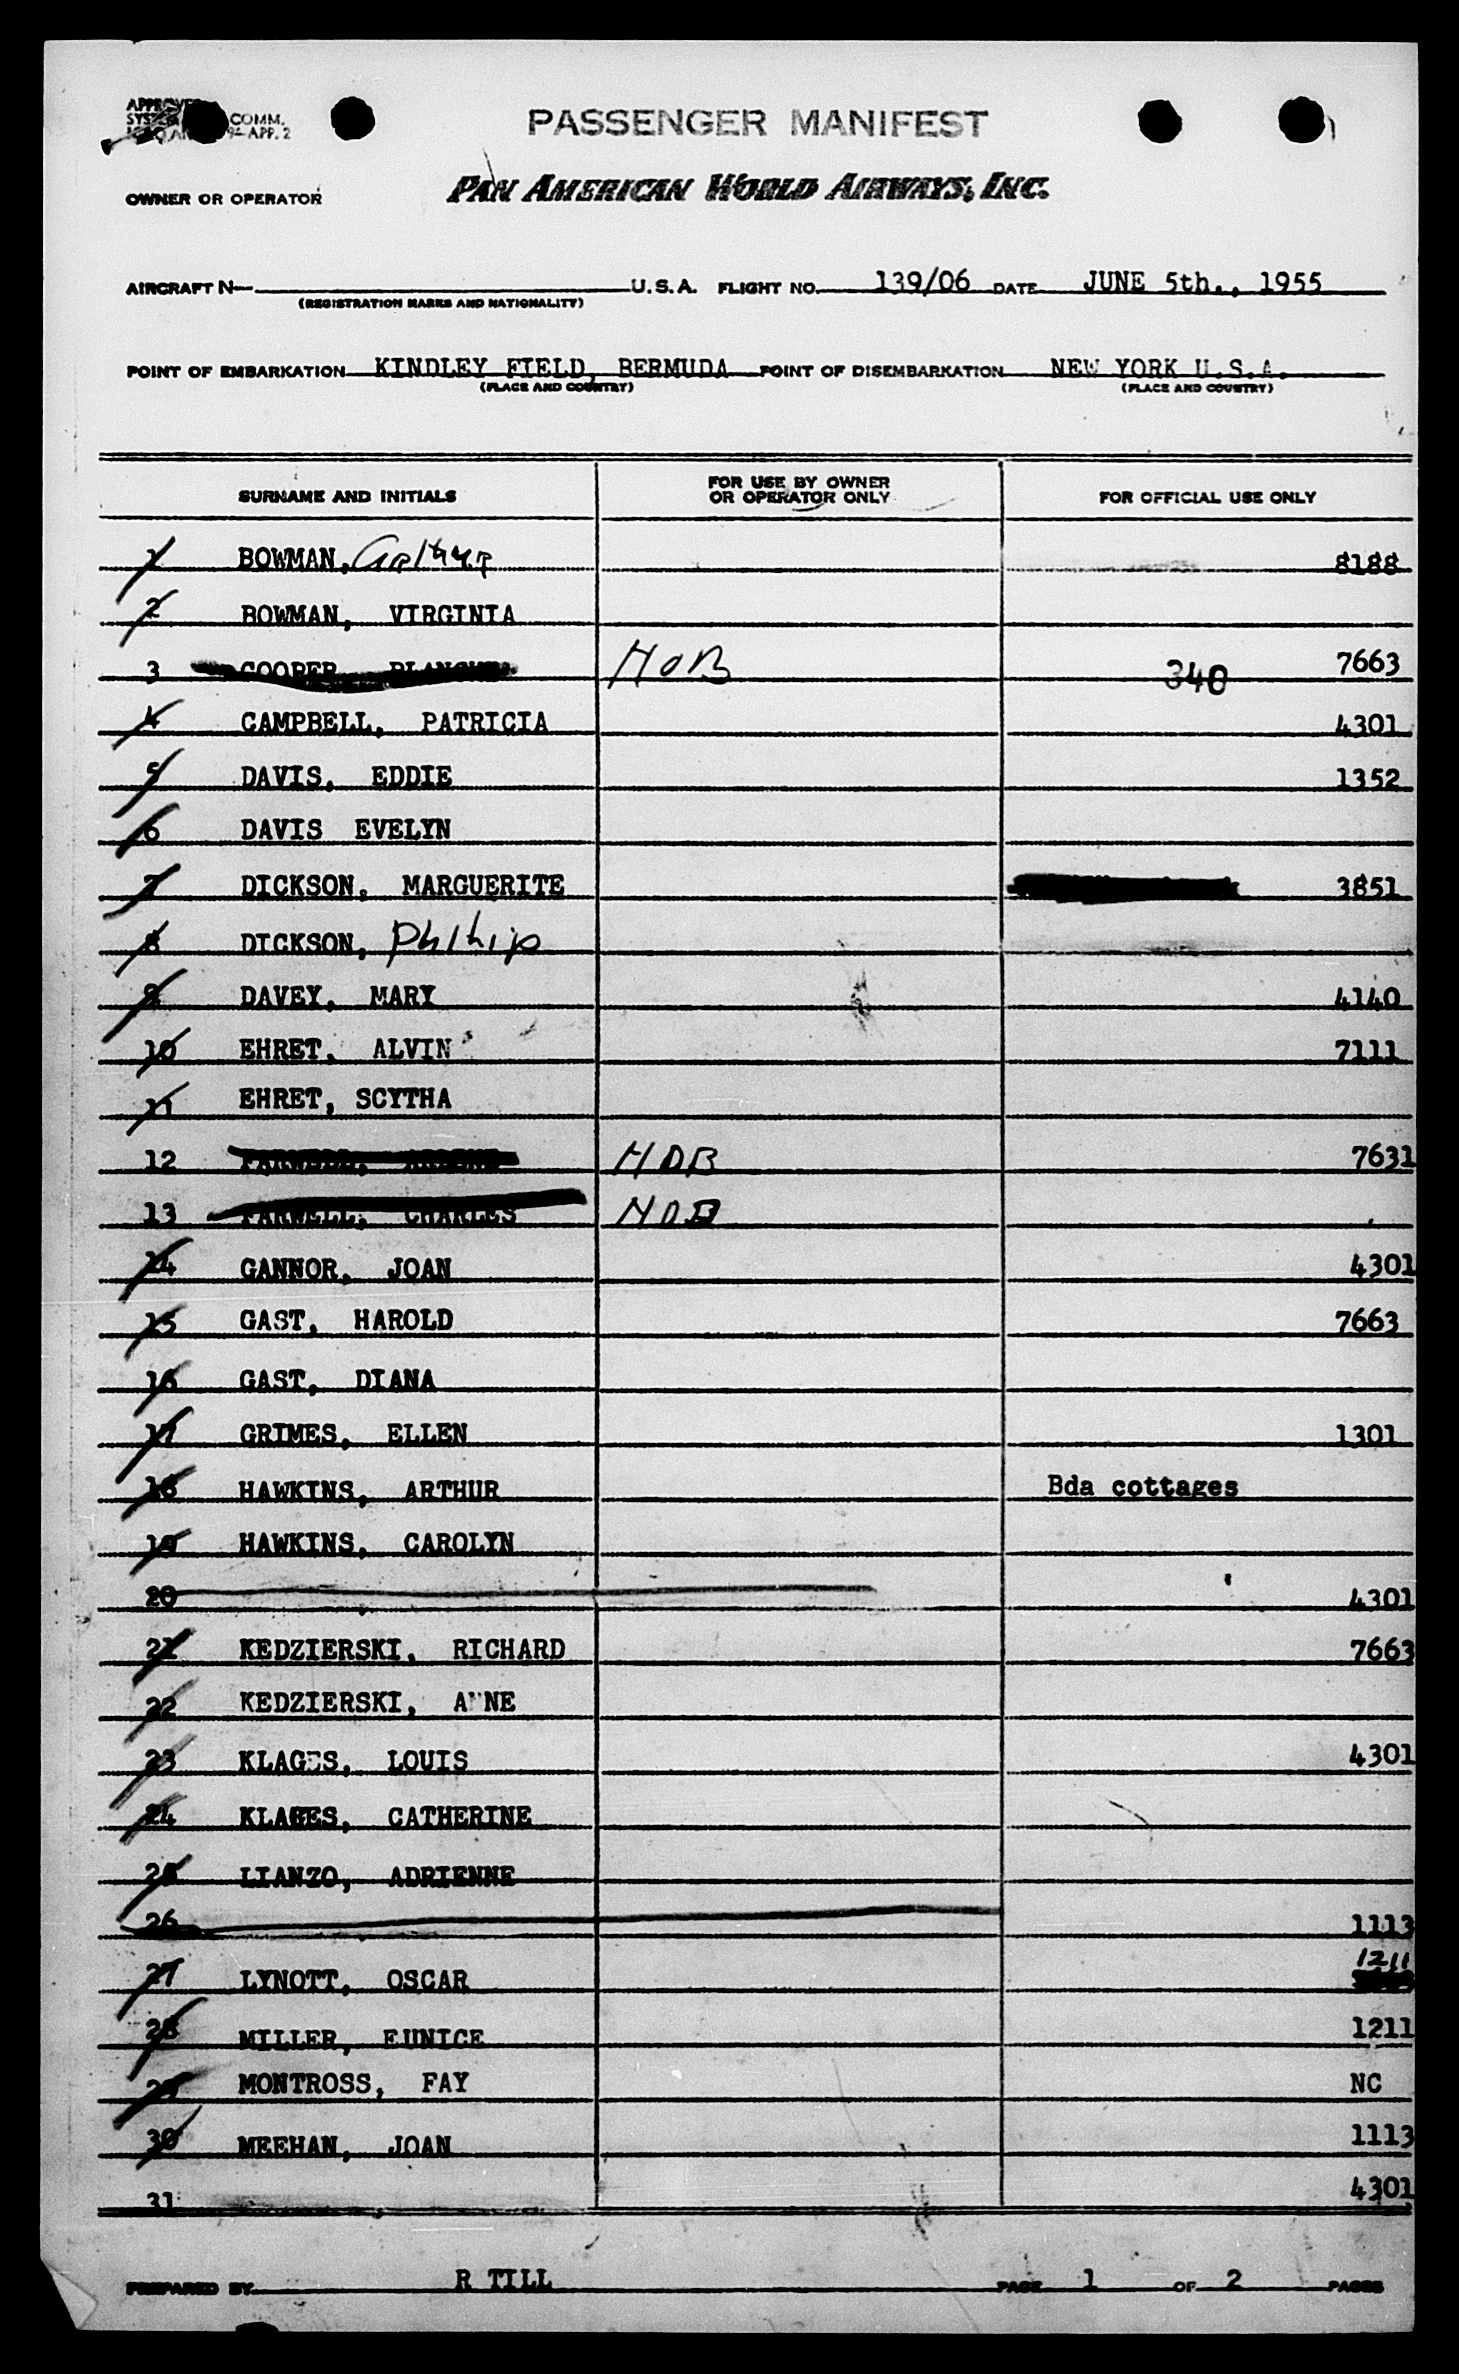 COMM.
94-APP. 2
PASSENGER MANIFEST
OWNER OR OPERATOR
PAN AMERICAN WORLD AIRWAYS, INC.
AIRCRAFT N- U.S.A. FLIGHT NO. 139/06 DATE JUNE 5th., 1955
(REGISTRATION MARKS AND NATIONALITY)
POINT OF EMBARKATION KINDLEY FIELD, BERMUDA POINT OF DISEMBARKATION NEW YORK U.S.A.
(PLACE AND COUNTRY) (PLACE AND COUNTRY)
SURNAME AND INITIALS FOR USE BY OWNER OR OPERATOR ONLY FOR OFFICIAL USE ONLY
1 BOWMAN, Arthur 8188
2 BOWMAN, VIRGINIA
3 COOPER HOB 340 7663
4 CAMPBELL, PATRICIA 4301
5 DAVIS, EDDIE 1352
6 DAVIS EVELYN
7 DICKSON, MARGUERITE 3851
8 DICKSON, Philip
9 DAVEY, MARY 4140
10 EHRET, ALVIN 7111
11 EHRET, SCYTHA
12 FARWELL, HOB 7631
13 FARWELL, CHARLES HOB
14 GANNOR, JOAN 4301
15 GAST, HAROLD 7663
16 GAST, DIANA
17 GRIMES, ELLEN 1301
18 HAWKINS, ARTHUR Bda cottages
19 HAWKINS, CAROLYN
20 4301
21 KEDZIERSKI, RICHARD 7663
22 KEDZIERSKI, ANNE
23 KLAGES, LOUIS 4301
24 KLAGES, CATHERINE
25 LIANZO, ADRIENNE
26 1113
27 LYNOTT, OSCAR 1211
28 MILLER, EUNICE 1211
29 MONTROSS, FAY NC
30 MEEHAN, JOAN 1113
31 4301
PREPARED BY R TILL PAGE 1 OF 2 PAGES